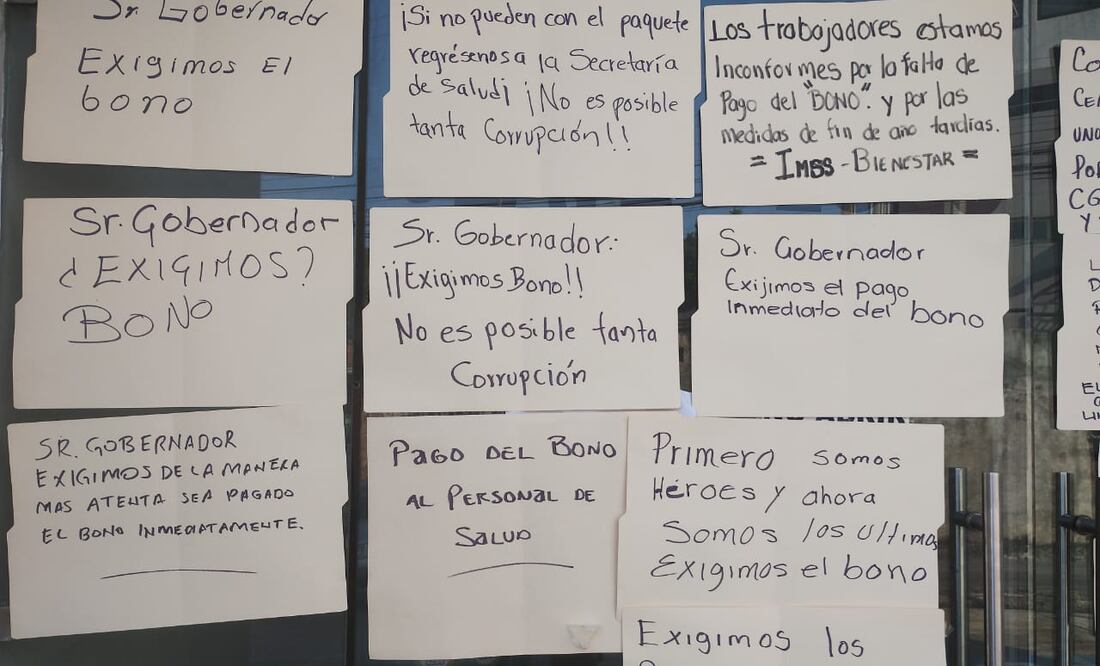 Sr. Gobernador
Exigimos El
bono
¡Si no pueden con el paquete
regrésenos a la Secretaría
de Salud¡ ¡No es posible
tanta Corrupción!!
Los trabajadores estamos
Inconformes por la falta de
Pago del "BONO". y por las
medidas de fin de año tardías.
= IMSS - BIENESTAR =
Sr. Gobernador
¿EXIGIMOS?
BONO
Sr. Gobernador:
¡¡Exigimos Bono!!
No es posible tanta
Corrupción
Sr. Gobernador
Exijimos el pago
Inmediato del bono
SR. GOBERNADOR
EXIGIMOS DE LA MANERA
MAS ATENTA SEA PAGADO
EL BONO INMEDIATAMENTE.
PAGO DEL BONO
AL PERSONAL DE
SALUD
Primero somos
Héroes y ahora
Somos los ultimos
Exigimos el bono
Exigimos los